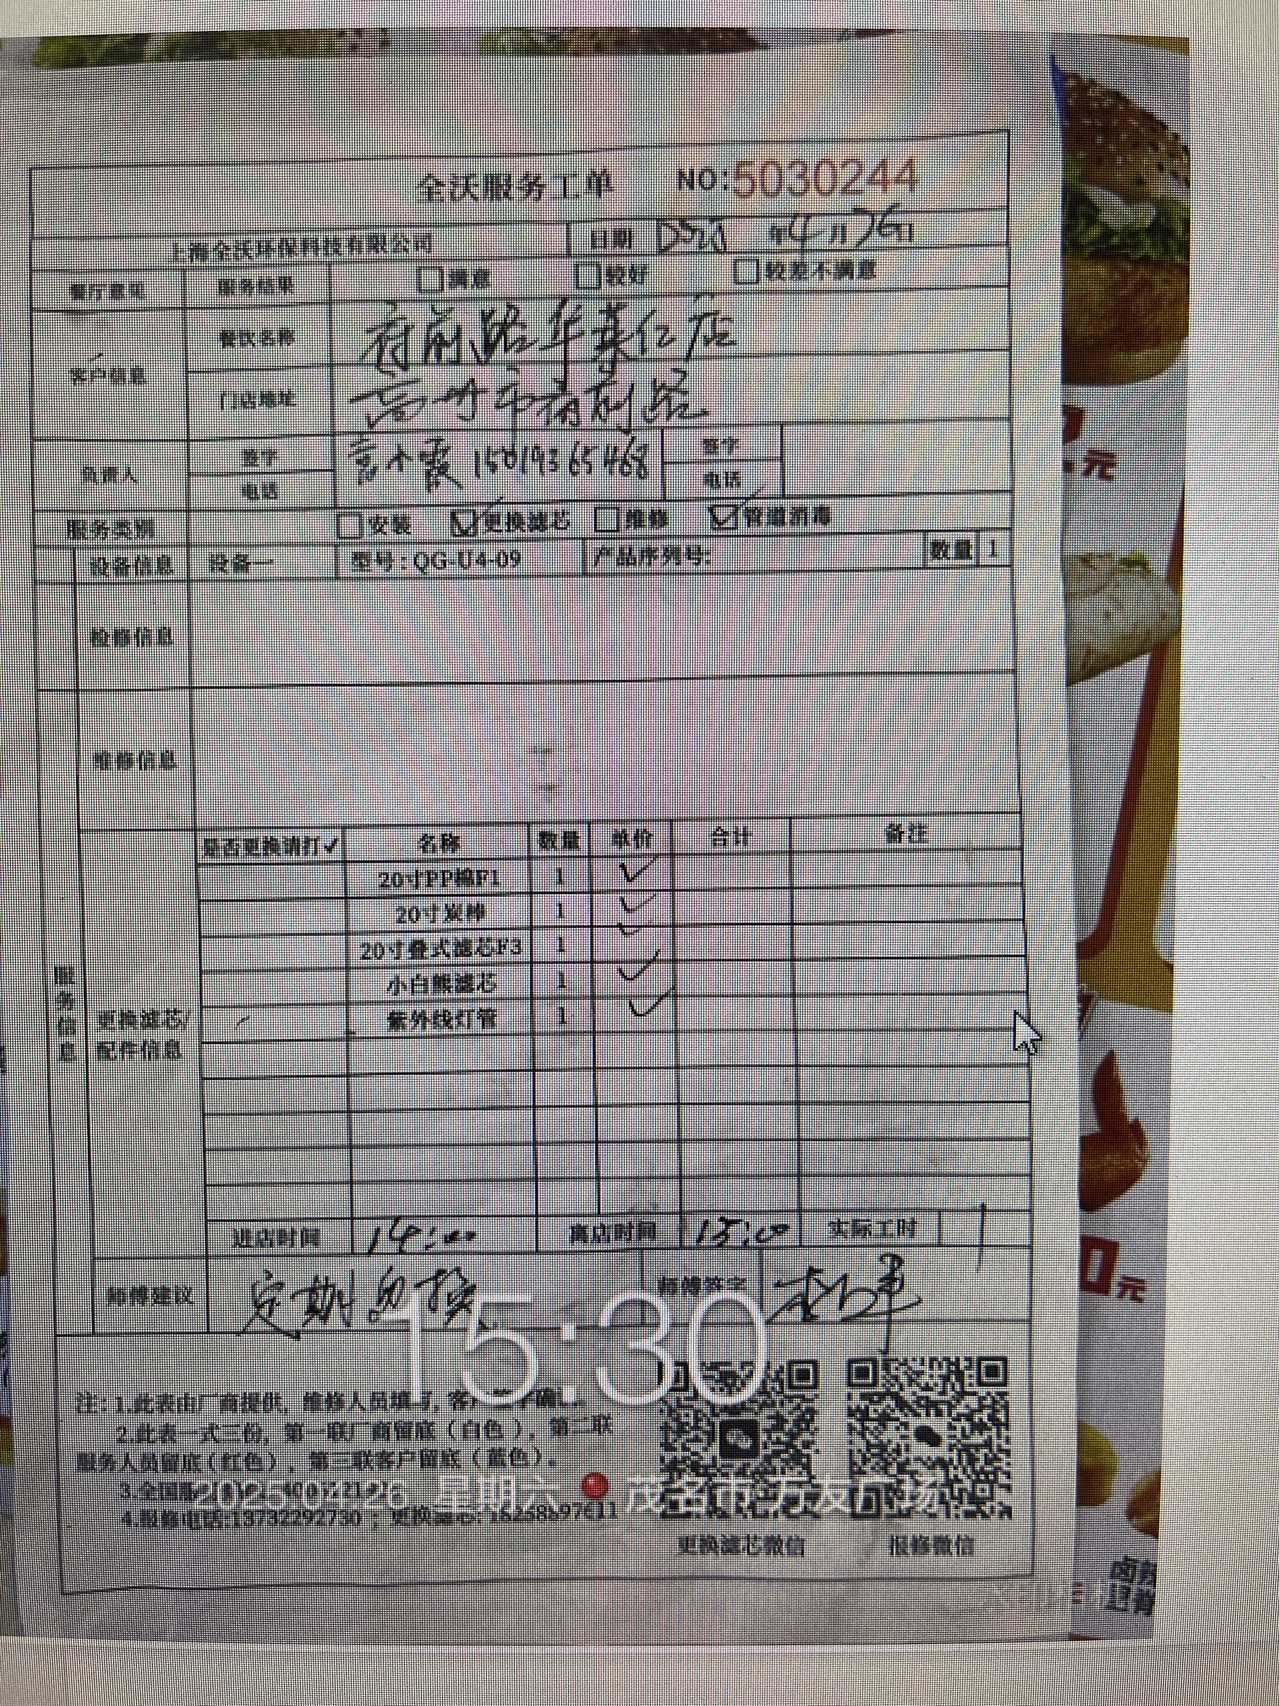 全沃服务工单 NO:5030244
上海全沃环保科技有限公司 日期 2025年4月26日
餐厅意见 服务结果 满意 较好 较差不满意
客户信息 餐饮名称 府前路华莱仕店
门店地址 高州市府前路
负责人 签字 小霞 15019365468 签字
电话 电话
服务类别 安装 更换滤芯 维修 管道消毒
设备信息 设备一 型号:QG-U4-09 产品序列号: 数量 1
检修信息
维修信息
是否更换请打✓ 名称 数量 单价 合计 备注
20寸PP棉F1 1 ✓
20寸炭棒 1 ✓
20寸叠式滤芯F3 1
小白熊滤芯 1 ✓
紫外线灯管 1 ✓
服务信息
更换滤芯/
配件信息
进店时间 14:00 离店时间 15:00 实际工时 1
师傅建议 定期更换 师傅签字
15:30
注: 1.此表由厂商提供, 维修人员填写, 客
2.此表一式三份, 第一联厂商留底(白色), 第二联
服务人员留底(红色) 第三联客户留底(蓝色)。
3.全国服
2025.04.26 星期六 茂名市·万友广场
4.报修电话:13732292730 ; 更换滤芯:
更换滤芯微信 报修微信
元
0元